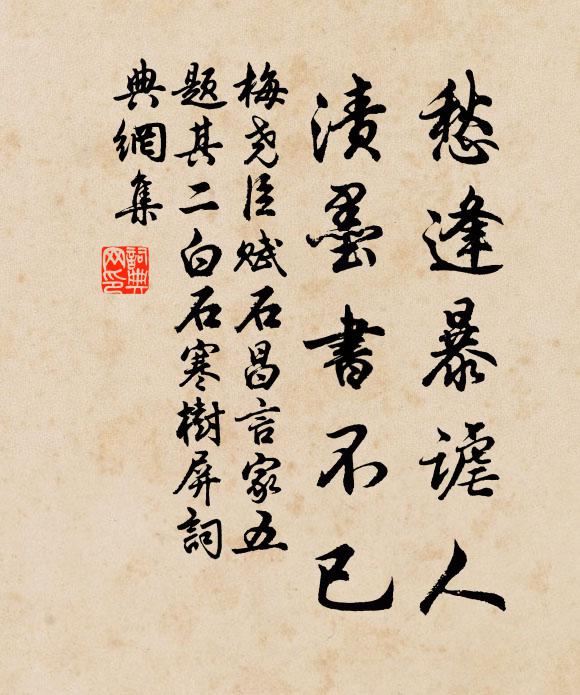 愁逢暴謔人
漬墨書不已
梅尧臣赋石昌言家五
题其二白石寒樹屏詞
典網集
詞典网印